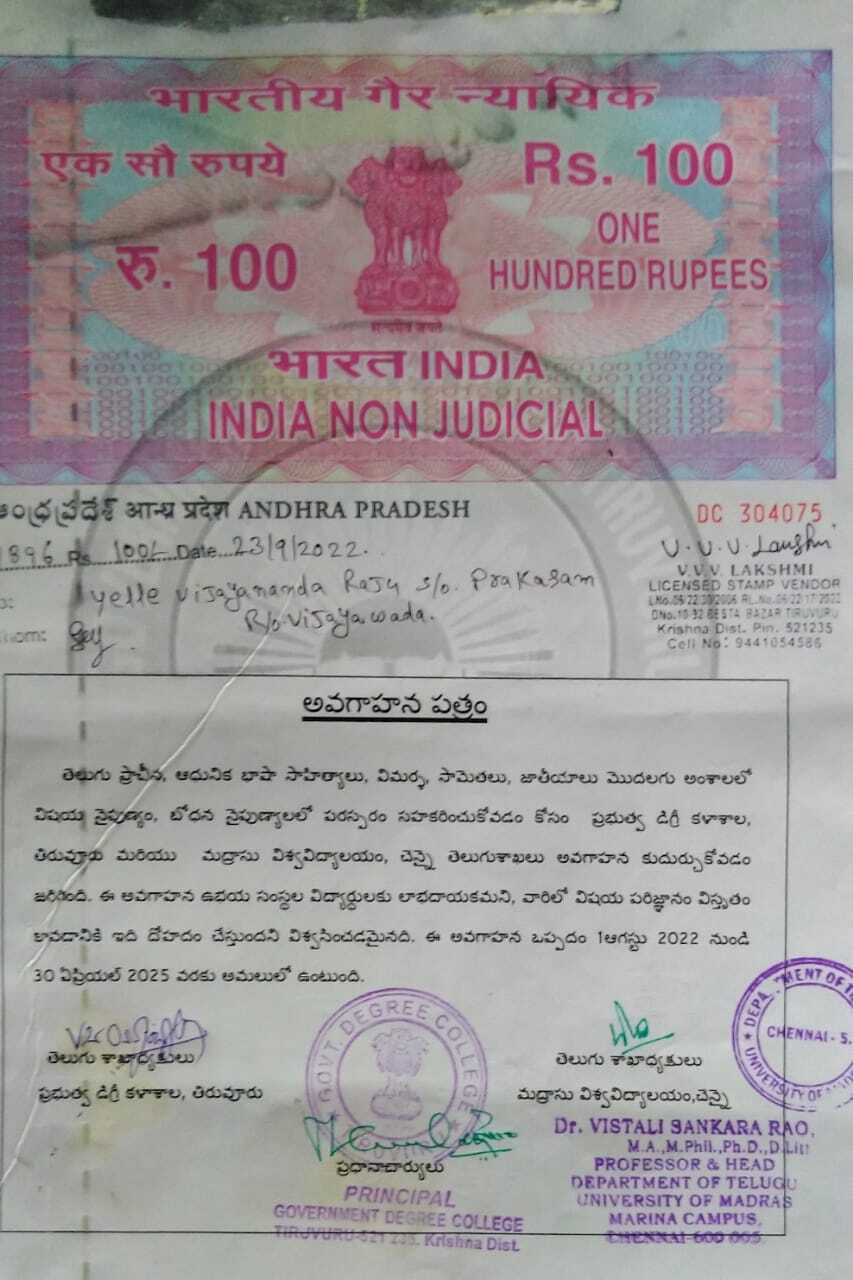 भारतीय गैर न्यायिक
एक सौ रुपये
Rs. 100
रु. 100
ONE
HUNDRED RUPEES
सत्यमेव जयते
भारत INDIA
INDIA NON JUDICIAL
ఆంధ్రప్రదేశ్ आन्ध्र प्रदेश ANDHRA PRADESH
DC 304075
1896 Rs 100/- Date 23/9/2022.
yelle vijayananda Raju s/o. Prakasam
R/o vijayawada.
V.V.V. Lakshmi
V.V.V. LAKSHMI
LICENSED STAMP VENDOR
DNo.10-32 BESTA BAZAR TIRUVURU
Krishna Dist. Pin. 521235
Cell No: 9441054586
అవగాహన పత్రం
తెలుగు ప్రాచీన, ఆధునిక భాషా సాహిత్యాలు, విమర్శ, సామెతలు, జాతీయాలు మొదలగు అంశాలలో
విషయ నైపుణ్యం, బోధన నైపుణ్యాలలో పరస్పరం సహకరించుకోవడం కోసం ప్రభుత్వ డిగ్రీ కళాశాల,
తిరువూరు మరియు మద్రాసు విశ్వవిద్యాలయం, చెన్నై తెలుగుశాఖలు అవగాహన కుదుర్చుకోవడం
జరిగింది. ఈ అవగాహన ఉభయ సంస్థల విద్యార్థులకు లాభదాయకమని, వారిలో విషయ పరిజ్ఞానం విస్తృతం
కావడానికి ఇది దోహదం చేస్తుందని విశ్వసించడమైనది. ఈ అవగాహన ఒప్పదం 1ఆగస్టు 2022 నుండి
30 ఏప్రియల్ 2025 వరకు అమలులో ఉంటుంది.
తెలుగు శాఖాధ్యక్షులు
ప్రభుత్వ డిగ్రీ కళాశాల, తిరువూరు
GOVT. DEGREE COLLEGE
ప్రధానాచార్యులు
PRINCIPAL
GOVERNMENT DEGREE COLLEGE
TIRUVURU-521 235. Krishna Dist.
CHENNAI - 5.
తెలుగు శాఖాధ్యక్షులు
మద్రాసు విశ్వవిద్యాలయం,చెన్నై
Dr. VISTALI SANKARA RAO,
M.A.,M.Phil.,Ph.D.,D.Litt
PROFESSOR & HEAD
DEPARTMENT OF TELUGU
UNIVERSITY OF MADRAS
MARINA CAMPUS,
CHENNAI-600 005.